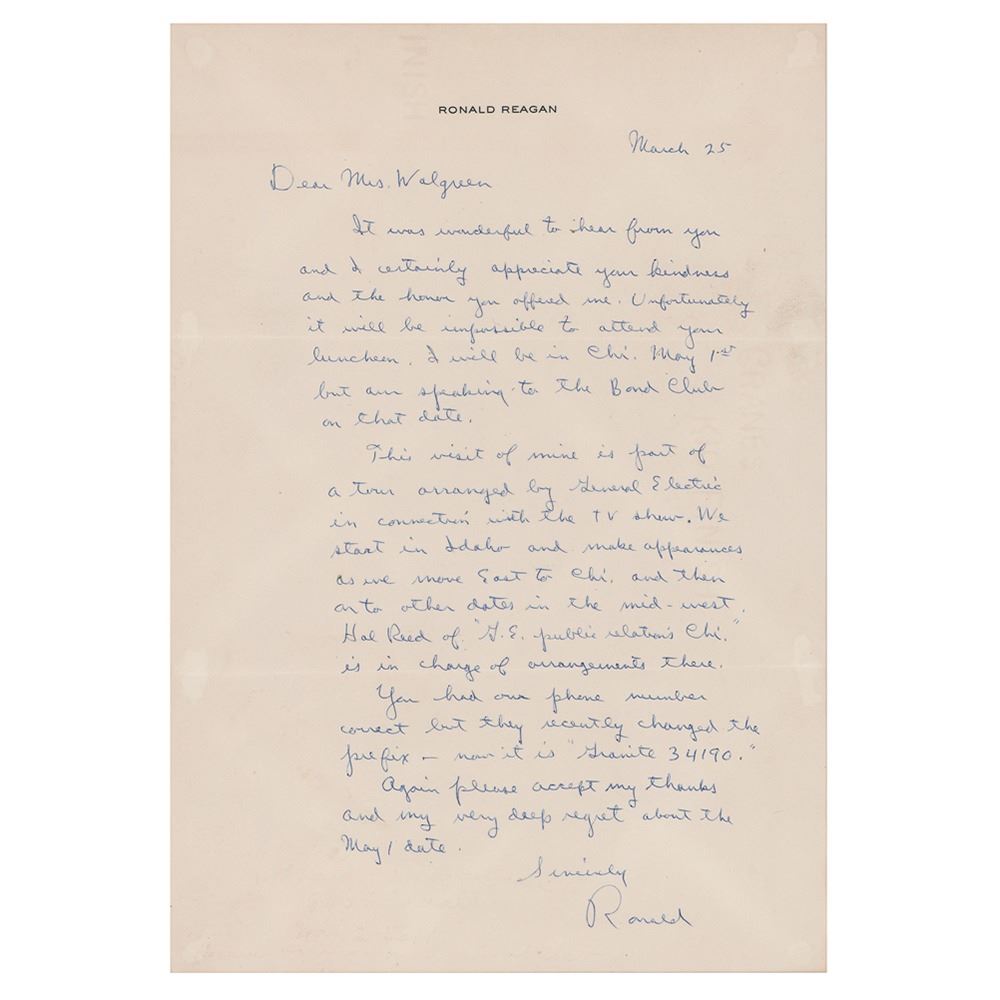 RONALD REAGAN
March 25
Dear Mrs. Walgreen
It was wonderful to hear from you
and I certainly appreciate your kindness
and the honor you offered me. Unfortunately
it will be impossible to attend your
luncheon. I will be in Chi. May 1st
but am speaking to the Bond Club
on that date.
This visit of mine is part of
a tour arranged by General Electric
in connection with the TV show. We
start in Idaho and make appearances
as we move East to Chi. and then
on to other dates in the mid-west.
Hal Reed of "G.E. public relations Chi."
is in charge of arrangements there.
You had our phone number
correct but they recently changed the
prefix – now it is "Granite 34190."
Again please accept my thanks
and my very deep regret about the
May 1 date.
Sincerely
Ronald